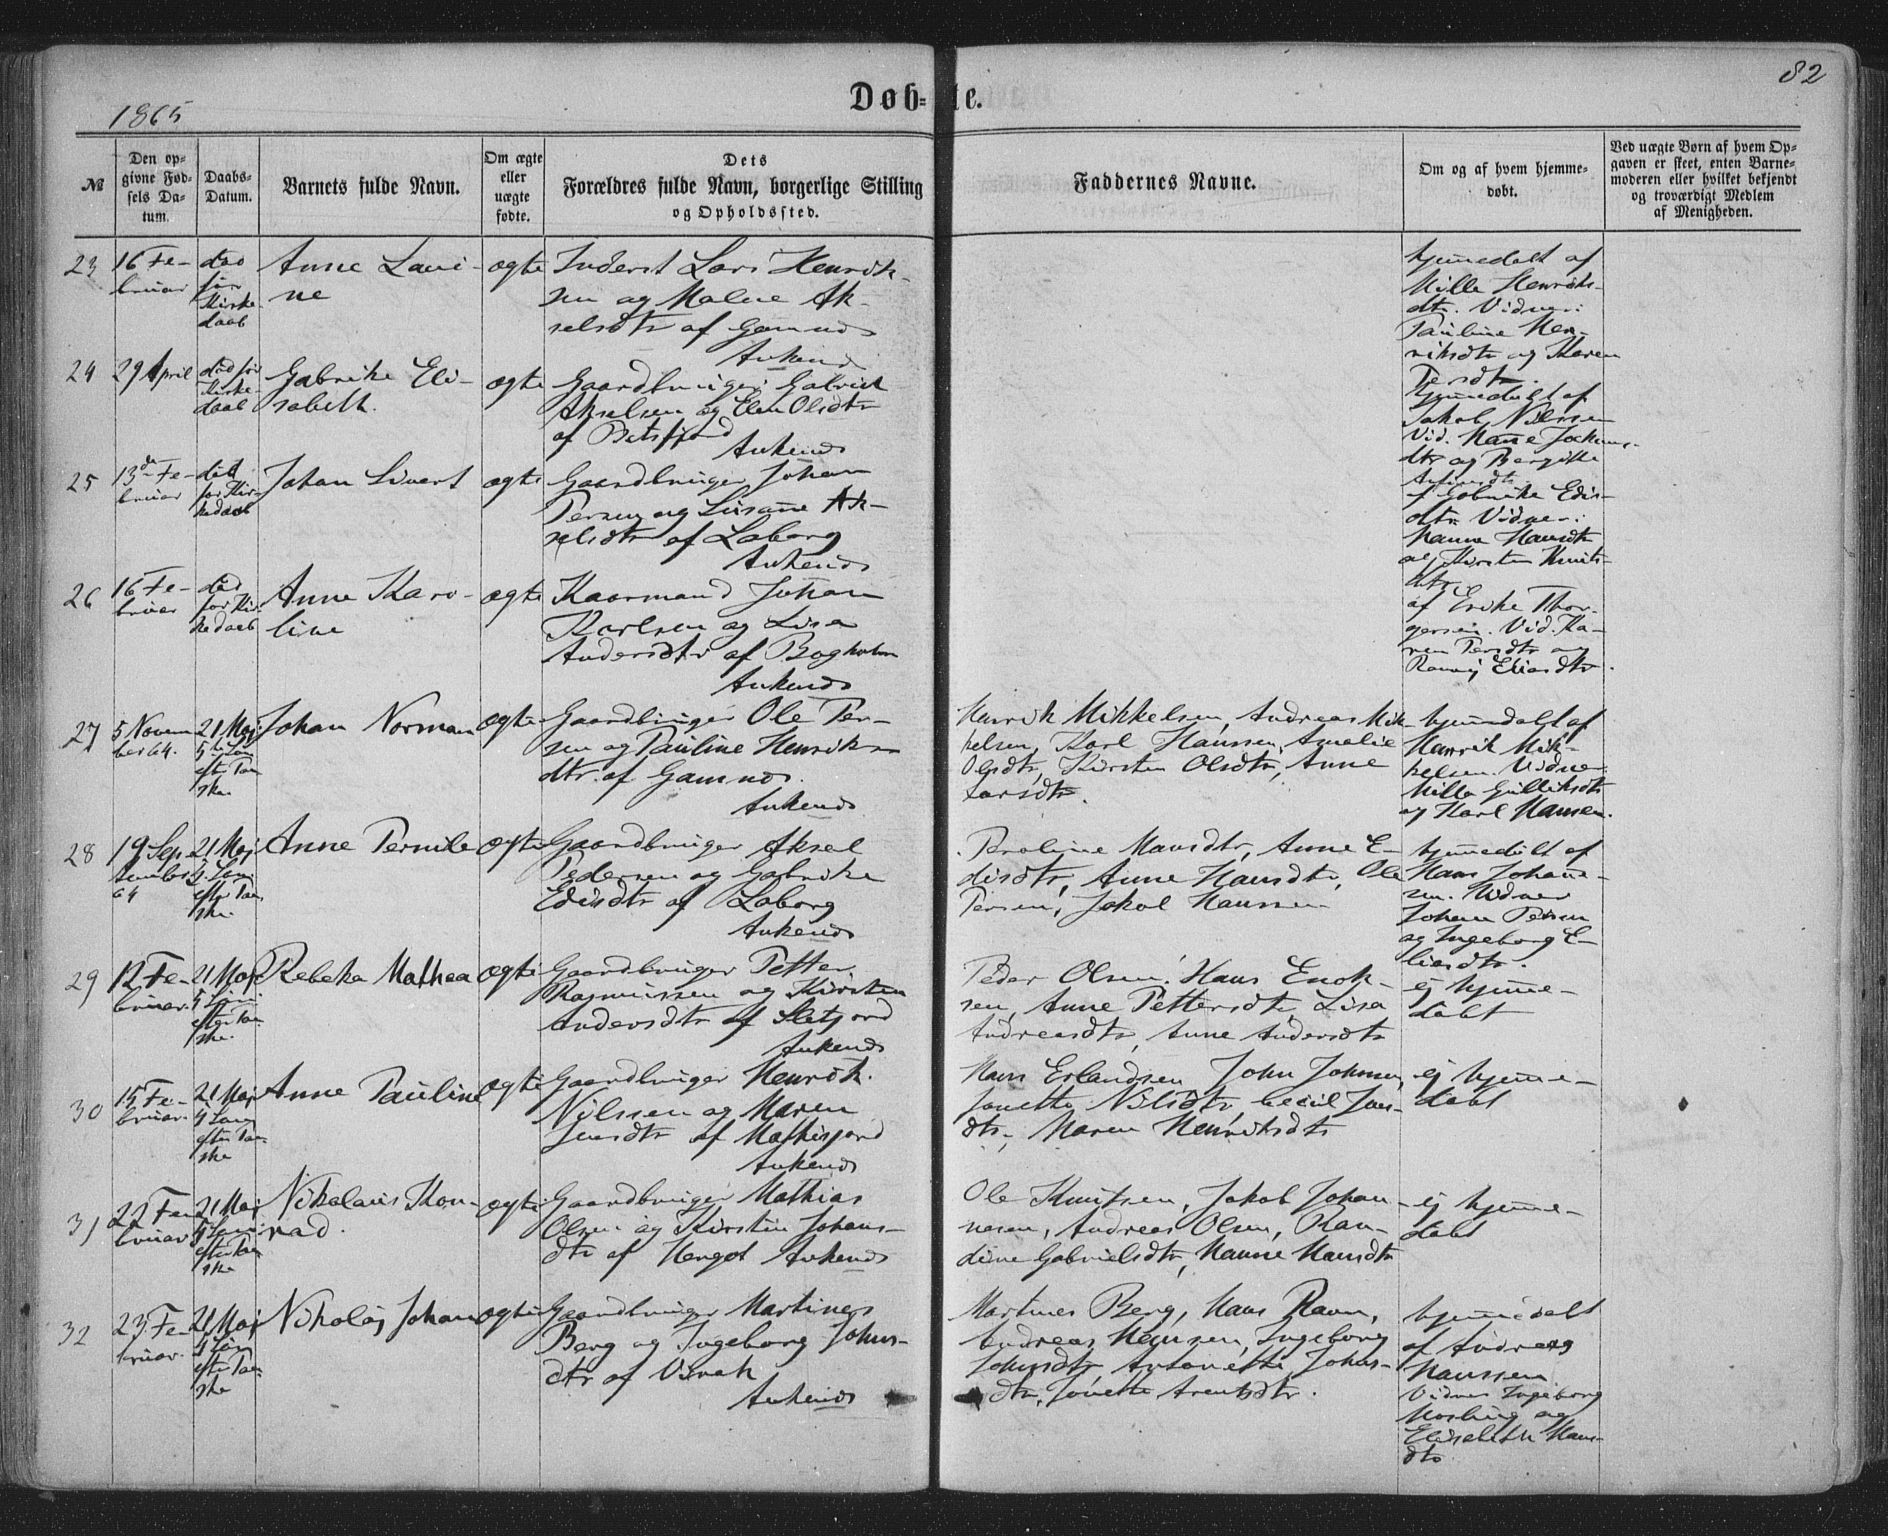 1865
Døb-te.
82
№
Den op-
givne Fød-
sels Da-
tum.
Daabs-
Datum.
Barnets fulde Navn.
Om ægte
eller
uægte
fødte.
Dets
Forældres fulde Navn, borgerlige Stilling
og Opholdssted.
Faddernes Navne.
Om og af hvem hjemme-
døbt.
Ved uægte Børn af hvem Op-
gaven er skeet, enten Barne-
moderen eller hvilket bekjendt
og troværdigt Medlem
af Menigheden.
23
16 Fe-
bruar
død
før
Kirke-
daab
Anne Lavi-
ne
ægte
Inderst Lars Henrik-
sen og Malene Ak-
selsdtr af Gamnes
Ankenes
hjemmedøbt af
Mille Henriks-
dtr. Vidner:
Pauline Hen-
riksdtr og Karen
Persdtr.
24
29 April
død før
Kirke-
daab
Gabrike Eli-
sabeth.
ægte
Gaardbruger Gabriel
Akselsen og Elen Olsdtr
af Beisfjord
Ankenes
Hjemmedøbt af
Jakob Nilssen
Vid. Hanne Jochums-
dtr og Bergitte
25
13de Fe-
bruar
død
før Kir-
kedaab
Johan Sivert
ægte
Gaardbruger Johan
Persen og Susanne Ak-
selsdtr af Laberg
Ankenes
af Gabrike Edis-
dtr. Vidner:
Hanna Hansdtr
og Kirsten Knuts-
dtr
26
16 Fe-
bruar
død
før Kir-
kedaab
Anne Karo-
line
ægte
Kaarmand Johan
Karlsen og Lisa
Andersdtr af Bogholm
Ankenes
af Erike Thor-
gersen. Vid. Ka-
ren Persdtr og
Ranveig Eliasdtr.
27
5 Novem
ber 64.
21 Maj
5te Søn
efter Paa
ske.
Johan Norman
ægte
Gaardbruger Ole Per-
sen og Pauline Henriks-
dtr. af Gamnes.
Ankenes
Henrik Mikkelsen, Andreas Mik-
kelsen, Karl Hanssen, Amalie
Olsdtr, Kirsten Olsdtr, Anne
Larsdtr.
hjemmedøbt af
Henrik Mik-
kelsen. Vidner
Mille Gulliksdtr
og Karl Hansen.
28
19 Sep
tember
64
21 Maj
5 Søn
efter Paa
ske.
Anne Pernile
ægte
Gaardbruger Aksel
Pedersen og Gabrike
Edisdtr af Laberg
Ankenes
Proline Hansdtr, Anne E-
disdtr, Anne Hansdtr, Ole
Persen, Jakob Hanssen
hjemmedøbt af
Hans Johanne-
sen. Vidner
Johan Persen
og Ingeborg E-
liasdtr.
29
12 Fe-
bruar.
21 Maj
5 Søn
efter Paa-
ske.
Rebeka Mathea
ægte
Gaardbruger Petter
Rasmussen og Kirsten
Andersdtr af Sletjord
Ankenes
Peder Olsen, Hans Enok-
sen, Anne Pettersdtr, Lisa
Andreasdtr, Anne Andersdtr
ej hjemme-
døbt
30
15 Fe-
bruar.
21 Maj
5 Søn
efter Paa-
ske
Anne Pauline
ægte
Gaardbruger Henrik
Nilssen og Maren
Jensdtr af Mathisjord
Ankenes
Hans Erlandsen, John Johnsen,
Jonette Nilsdtr, Cecil Jons-
dtr, Maren Henriksdtr
ej hjemme-
døbt
31
22 Fe-
bruar
21 Maj
5 Søn
efter Paa
ske
Nikolaus Kon-
rad.
ægte
Gaardbruger Mathias
Olsen og Kirstin Johans-
dtr af Hergot Ankenes
Ole Knutsen, Jakob Johan-
nesen, Andreas Olsen, Ran-
dine Gabrielsdtr, Hanne Hansdtr
ej hjemme-
døbt
32
23 Fe-
bruar.
21 Maj
5 Søn
efter Paa-
ske
Nikolaj Johan
ægte
Gaardbruger Martines
Berg og Ingeborg Johns-
dtr af Virak
Ankenes
Martines Berg, Hans Ravn,
Andreas Hanssen, Ingeborg
Johnsdtr, Antonette Johns-
dtr, Jonette Arentsdtr.
hjemmedøbt
af Andreas
Hanssen
Vidner Ingeborg
og
Elisabeth Hans-
dtr